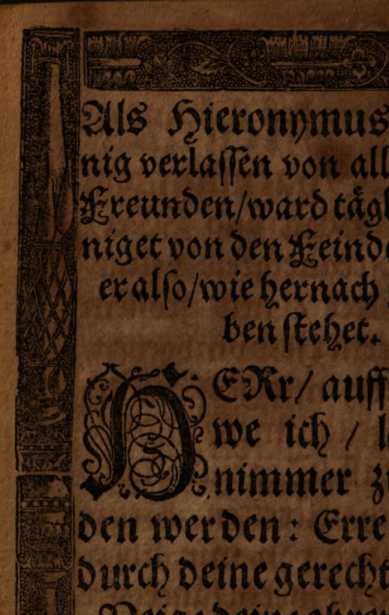 Als Hieronymus
nig verlassen von all
Freunden/ward tägl
niget von den Feinde
er also/wie hernach
ben stehet.
HERr/ auff
we ich / l
nimmer z
den werden: Erre
durch deine gerecht